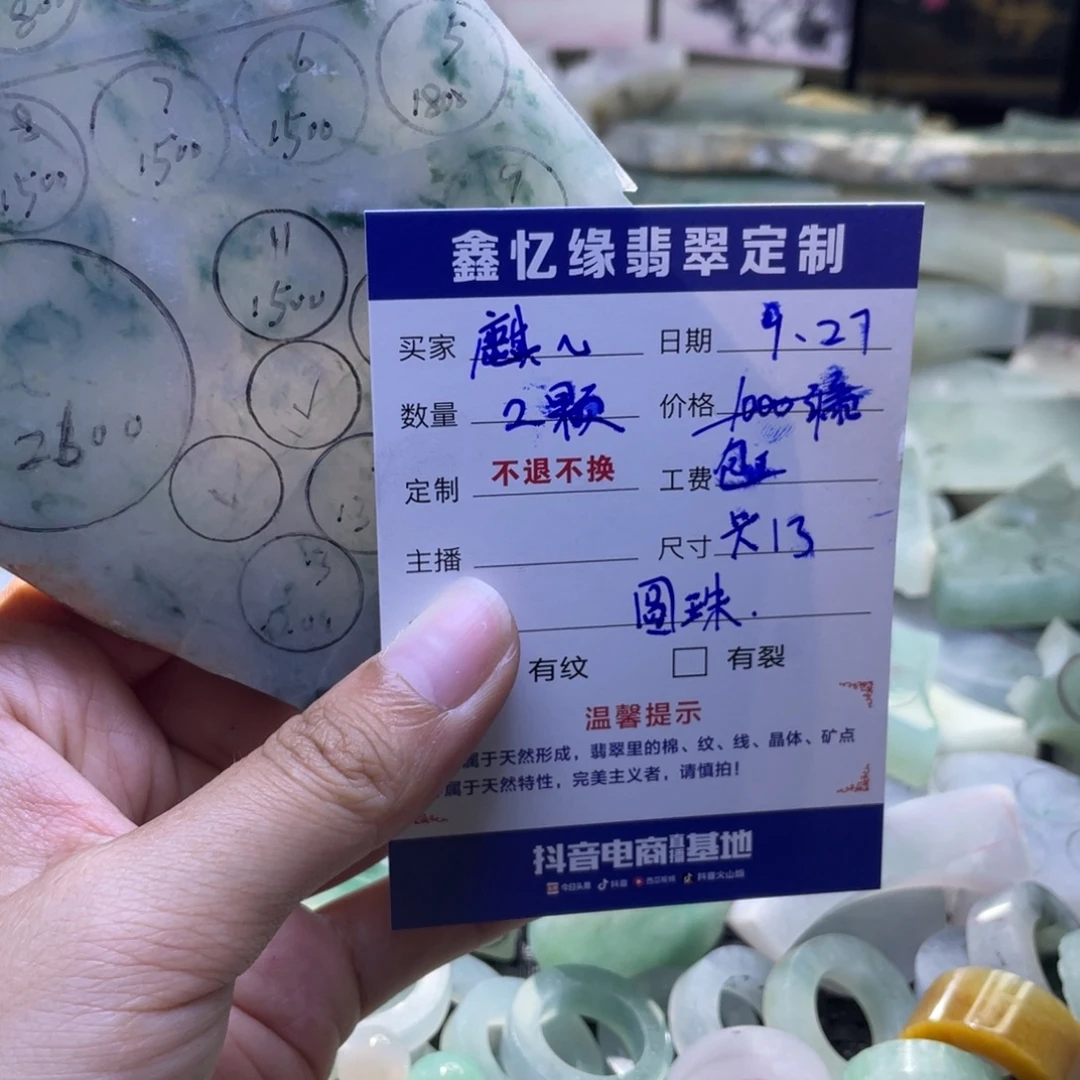 6
1500
5
1800
7
1500
8
1500
9
11
1500
2600
13
鑫忆缘翡翠定制
买家 麒儿 日期 9.27
数量 2颗 价格 1000
定制 不退不换 工费 包工
主播 尺寸 大13
圆珠.
有纹 有裂
温馨提示
属于天然形成，翡翠里的棉、纹、线、晶体、矿点
属于天然特性，完美主义者，请慎拍！
抖音电商直播基地
今日头条 抖音 西瓜视频 抖音火山版